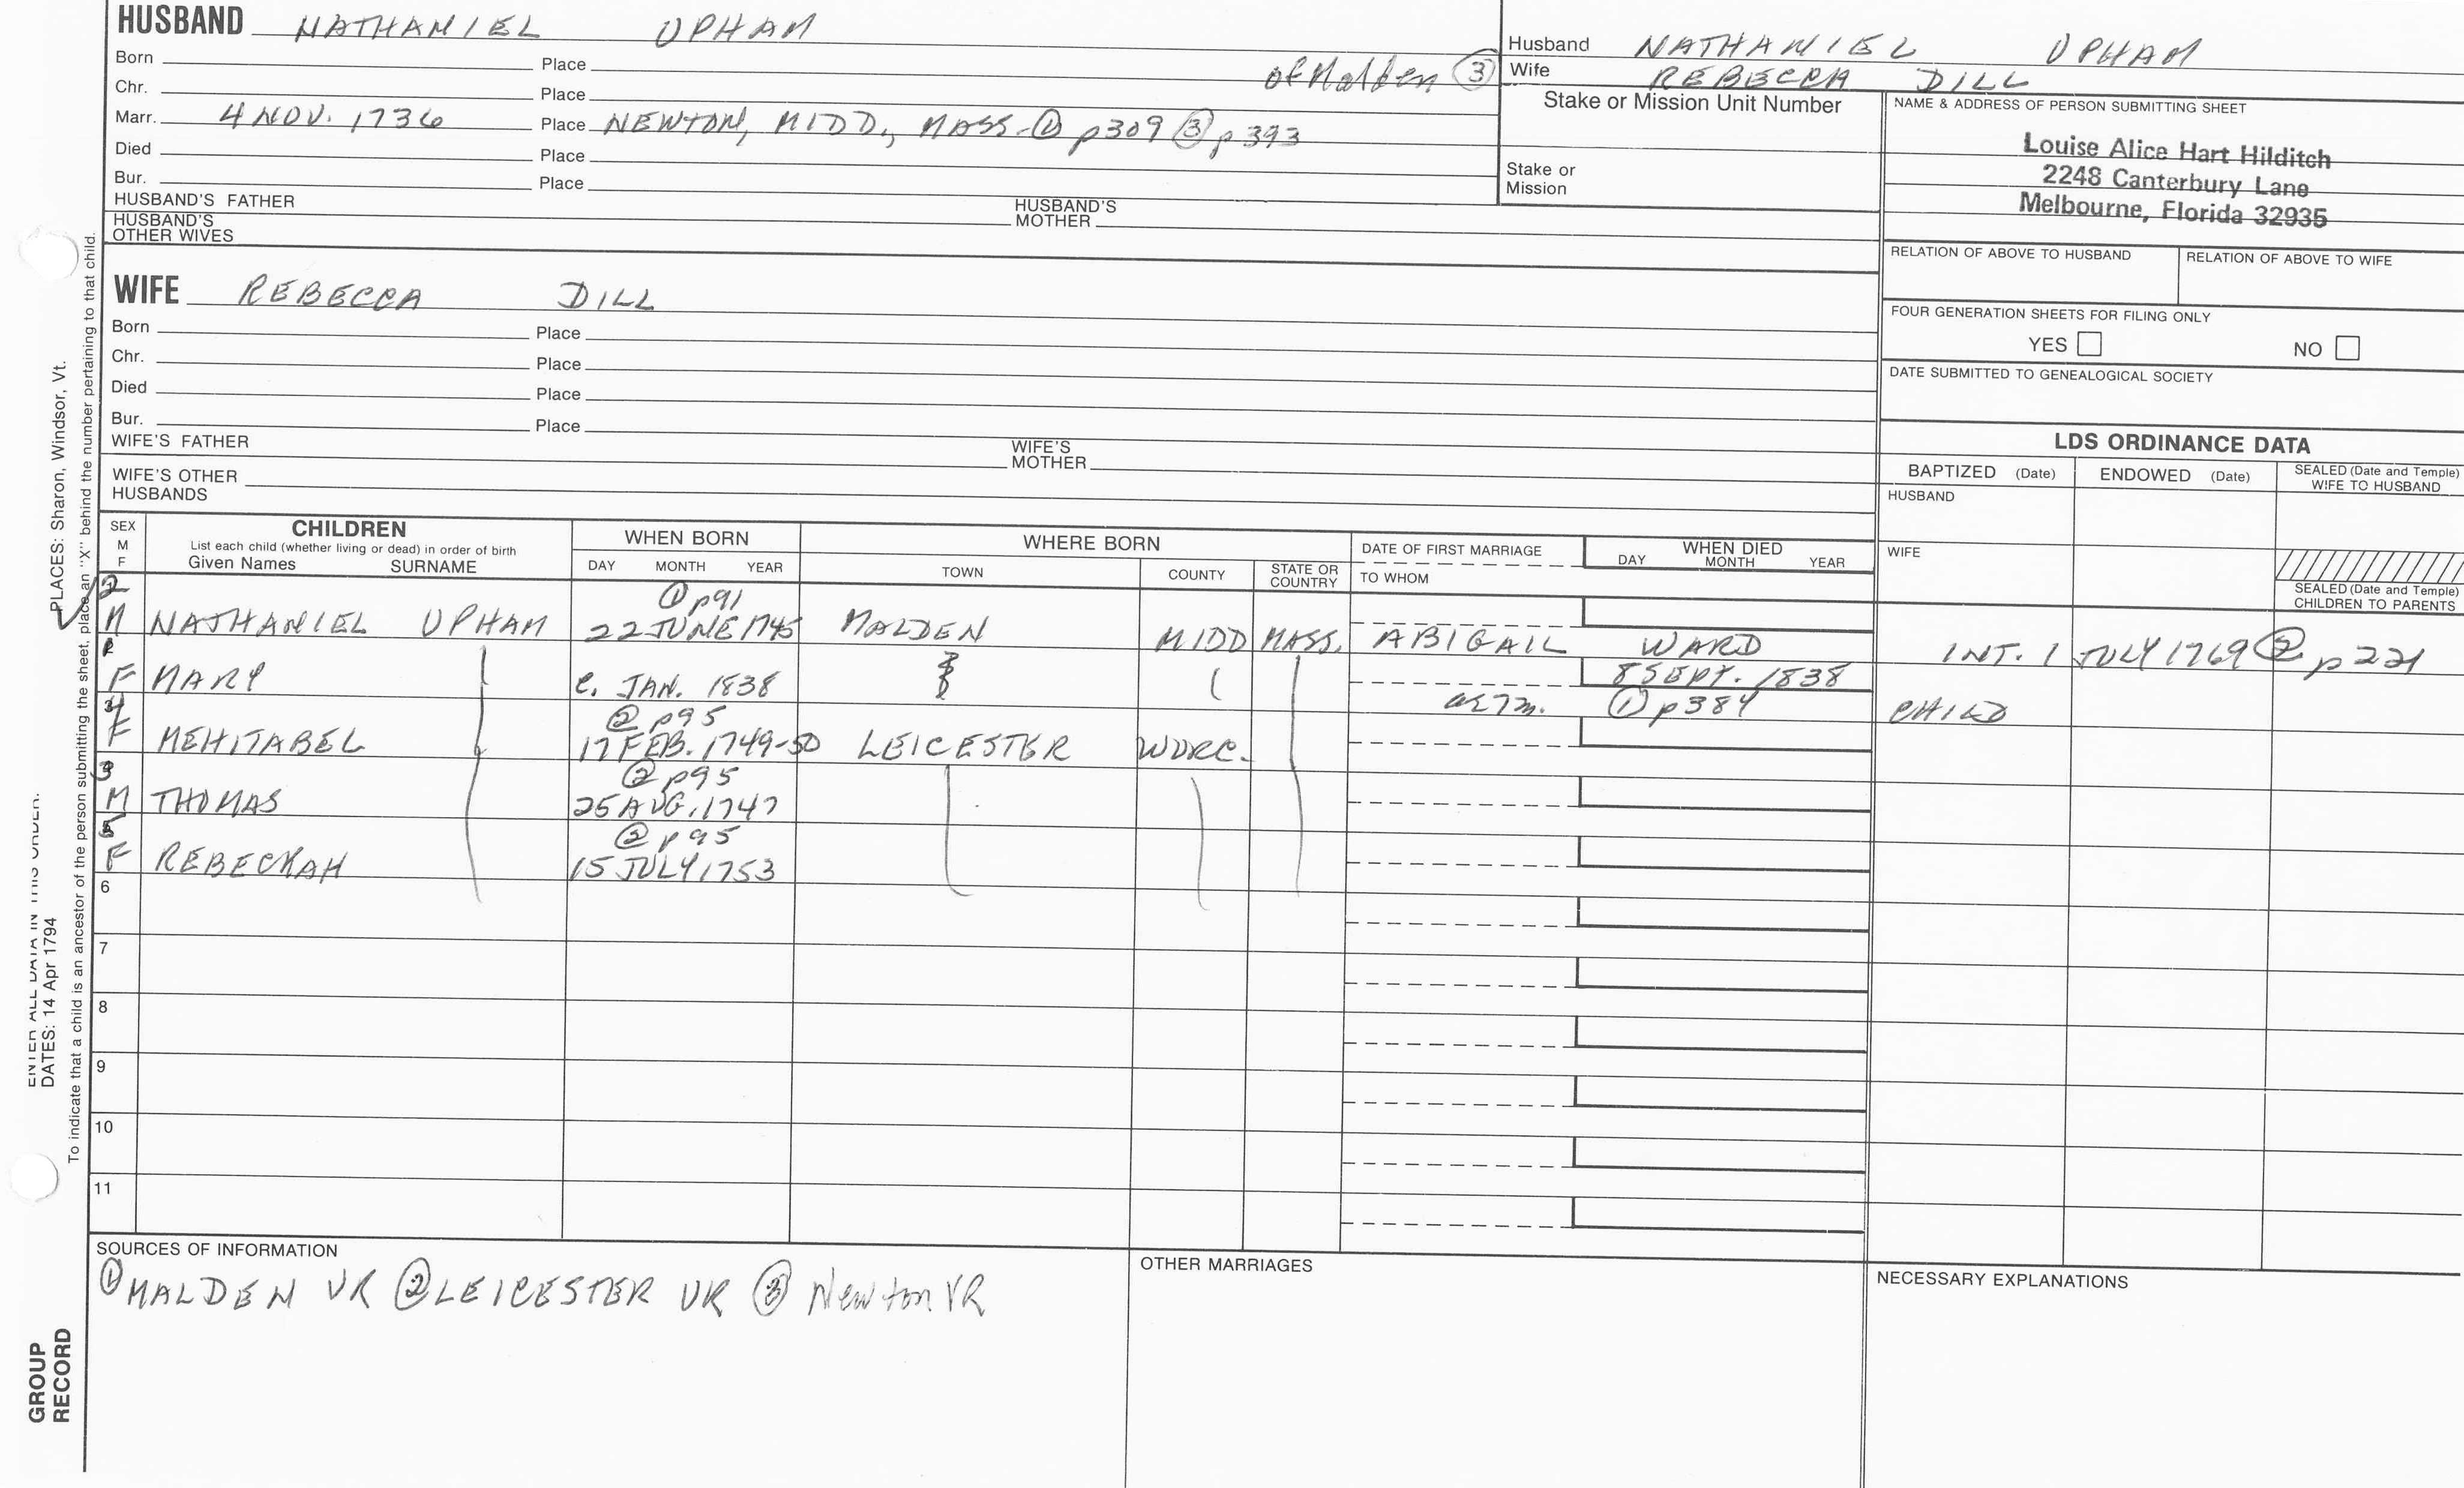 HUSBAND NATHANIEL UPHAM
Born Place of Malden ③
Chr. Place
Marr. 4 NOV. 1736 Place NEWTON, MIDD., MASS. ① p309 ③ p393
Died Place
Bur. Place
HUSBAND'S FATHER HUSBAND'S MOTHER
HUSBAND'S OTHER WIVES
Husband NATHANIEL UPHAM
Wife REBECCA DILL
Stake or Mission Unit Number
Stake or
Mission
NAME & ADDRESS OF PERSON SUBMITTING SHEET
Louise Alice Hart Hilditch
2248 Canterbury Lane
Melbourne, Florida 32935
RELATION OF ABOVE TO HUSBAND RELATION OF ABOVE TO WIFE
FOUR GENERATION SHEETS FOR FILING ONLY
YES NO
DATE SUBMITTED TO GENEALOGICAL SOCIETY
WIFE REBECCA DILL
Born Place
Chr. Place
Died Place
Bur. Place
WIFE'S FATHER WIFE'S MOTHER
WIFE'S OTHER HUSBANDS
LDS ORDINANCE DATA
BAPTIZED (Date) ENDOWED (Date) SEALED (Date and Temple) WIFE TO HUSBAND
HUSBAND
WIFE
SEALED (Date and Temple) CHILDREN TO PARENTS
SEX M F
CHILDREN
List each child (whether living or dead) in order of birth
Given Names SURNAME
WHEN BORN
DAY MONTH YEAR
WHERE BORN
TOWN COUNTY STATE OR COUNTRY
DATE OF FIRST MARRIAGE
TO WHOM
WHEN DIED
DAY MONTH YEAR
2 ① p91
M NATHANIEL UPHAM 22 JUNE 1745 MALDEN MIDD MASS. ABIGAIL WARD INT. 1 JULY 1769 ② p221
1
F MARY C. JAN. 1838 8 SEPT. 1838
ae 7m. ① p384 CHILD
4 ② p95
F MEHITABEL 17 FEB. 1749-50 LEICESTER WORC.
3 ② p95
M THOMAS 25 AUG. 1747
5 ② p95
F REBECKAH 15 JULY 1753
6
7
8
9
10
11
SOURCES OF INFORMATION
① MALDEN VR ② LEICESTER VR ③ Newton VR
OTHER MARRIAGES
NECESSARY EXPLANATIONS
PLACES: Sharon, Windsor, Vt.
To indicate that a child is an ancestor of the person submitting the sheet, place an "X" behind the number pertaining to that child.
ENTER ALL DATA IN THIS ORDER:
DATES: 14 Apr 1794
GROUP
RECORD